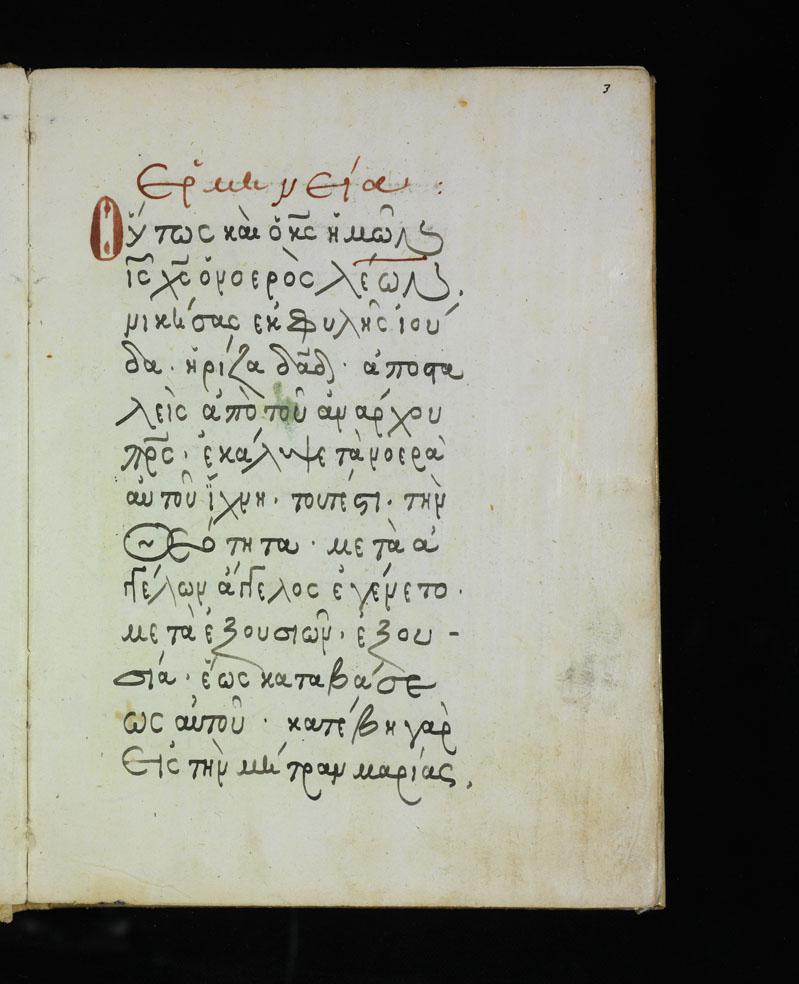 3
Ερμηνεία :
Οὕτως καὶ ὁ κ̅ς ἡμῶν
ι̅ς χ̅ς ὁ νοερὸς λέων,
νικήσας ἐκ φυλῆς ἰού
δα · ἡ ρίζα δα̅δ · ἀποστα
λεὶς ἀπὸ τοῦ ἀνάρχου
πρ̅ς · ἐκάλυψε τὰ νοερὰ
αὐτοῦ ἴχνη · τουτέστι · τὴν
θεότητα · μετὰ ἀ
γγέλων ἄγγελος ἐγένετο ·
μετὰ ἐξουσιῶν · ἐξου -
σία · ἕως καταβάσε
ως αὐτοῦ · κατέβη γὰρ
εἰς τὴν μήτραν μαρίας,